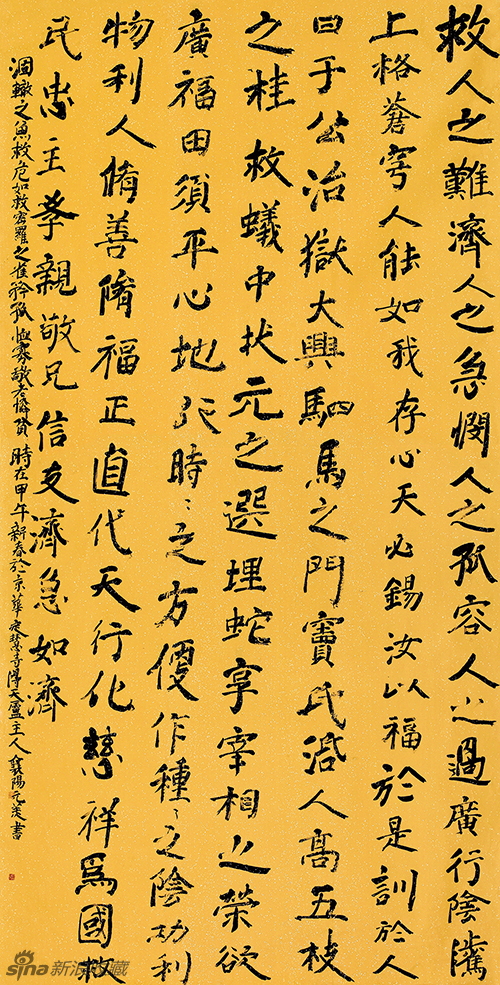 救人之難濟人之急憫人之孤容人之過廣行陰騭
上格蒼穹人能如我存心天必錫汝以福於是訓於人
曰于公治獄大興駟馬之門竇氏濟人高五枝
之桂救蟻中狀元之選埋蛇享宰相之榮欲
廣福田須平心地行時々之方便作種々之陰功利
物利人脩善脩福正直代天行化慈祥爲國救
民忠主孝親敬兄信友濟急如濟
涸轍之魚救危如救密羅之雀矜孤恤寡敬老憐貧時在甲午新春於京華定慧寺天廬主人襄陽書
sina新浪收藏